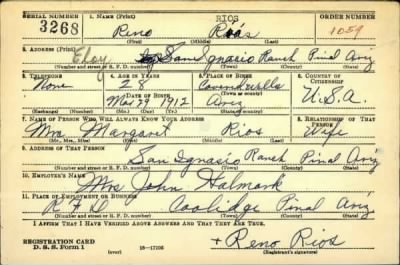 SERIAL NUMBER 1. NAME (Print) RIOS ORDER NUMBER
3268 Reno Rois 1059
(First) (Middle) (Last)
2. ADDRESS (Print)
Eloy San Ignasio Ranch Pinal Ariz
(Number and street or R. F. D. number) (Town) (County) (State)
3. TELEPHONE 4. AGE IN YEARS 5. PLACE OF BIRTH 6. COUNTRY OF CITIZENSHIP
None 28
DATE OF BIRTH (Town or county)
Mar 29 1912 Ariz U.S.A.
(Exchange) (Number) (Mo.) (Day) (Yr.) (State or country)
7. NAME OF PERSON WHO WILL ALWAYS KNOW YOUR ADDRESS 8. RELATIONSHIP OF THAT PERSON
Mrs. Margaret Rios Wife
(Mr., Mrs., Miss) (First) (Middle) (Last)
9. ADDRESS OF THAT PERSON
San Ignasio Ranch Pinal Ariz
(Number and street or R. F. D. number) (Town) (County) (State)
10. EMPLOYER'S NAME
Mrs John Halmark
11. PLACE OF EMPLOYMENT OR BUSINESS
R F D Coolidge Pinal Ariz
(Number and street or R. F. D. number) (Town) (County) (State)
I AFFIRM THAT I HAVE VERIFIED ABOVE ANSWERS AND THAT THEY ARE TRUE.
REGISTRATION CARD + Reno Rios
D. S. S. Form 1 (over) 16—17105 (Registrant's signature)